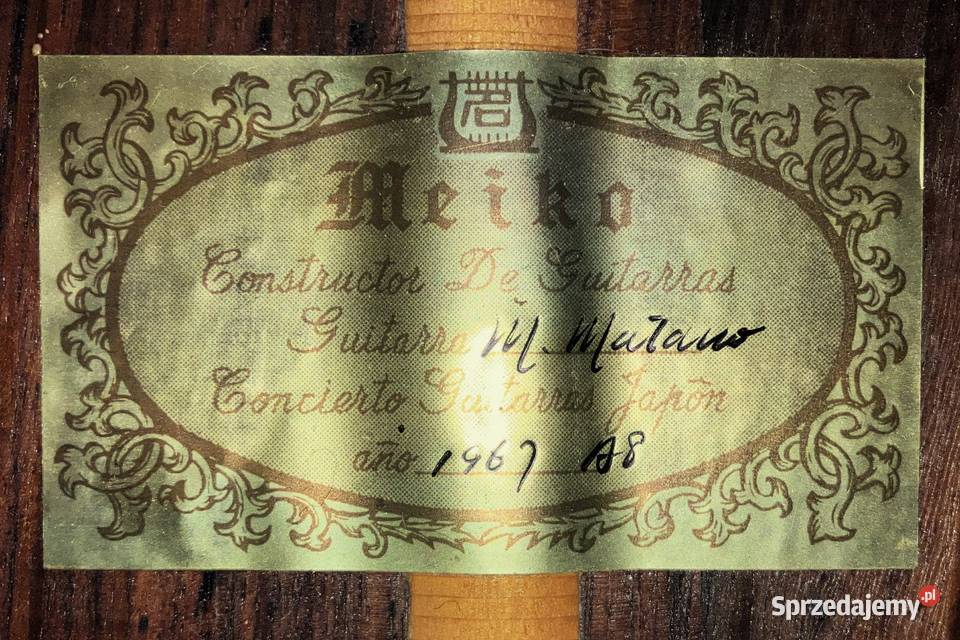 Meiko
Constructor De Guitarras
Guitarra M. Matano
Concierto Guitarras Japón
año 1967 A8
Sprzedajemy.pl